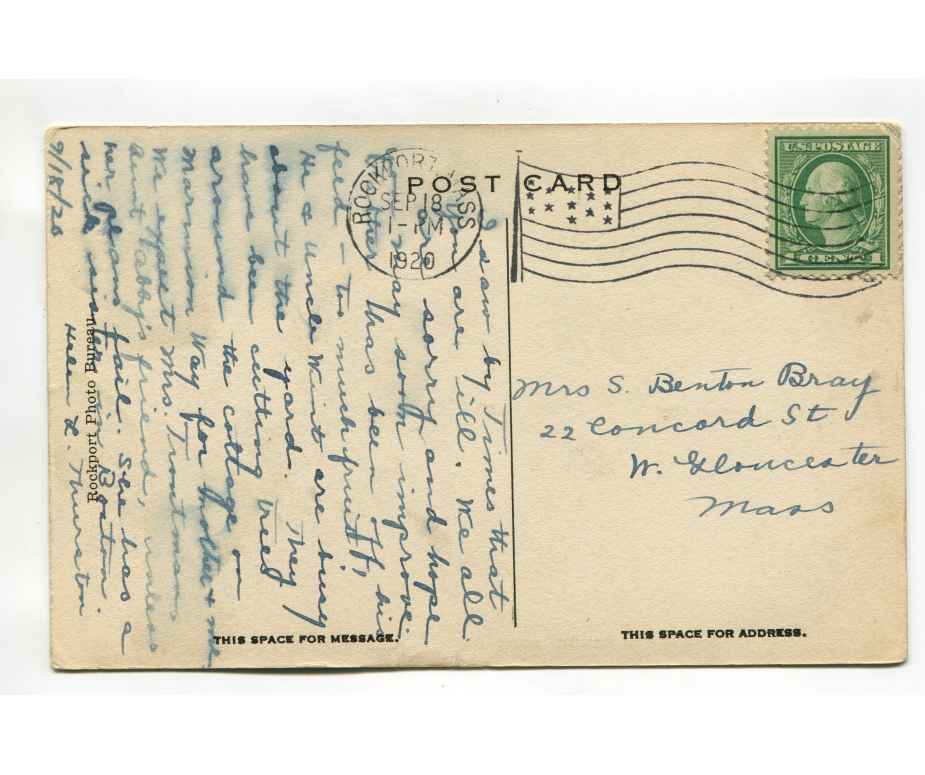 POST CARD
ROCKPORT MASS
SEP 18
1-PM
1920
U.S. POSTAGE
1 CENT 1
I saw by Times that
you are ill. We all
are sorry and hope
you may soon improve.
Father has been off his
feed - to much fruit,
He & Uncle Wint are busy
about the yard. They
have been cutting trees
around the cottage on
Marmion Way for Mother & me
We expect Mrs. Troutman
Aunt Tabby's friend, unless
her plans fail. She has a
sick sister in Boston.
Helen L. Thurston
9/18/20
Rockport Photo Bureau
Mrs S. Benton Bray
22 Concord St
W. Gloucester
Mass
THIS SPACE FOR MESSAGE.
THIS SPACE FOR ADDRESS.